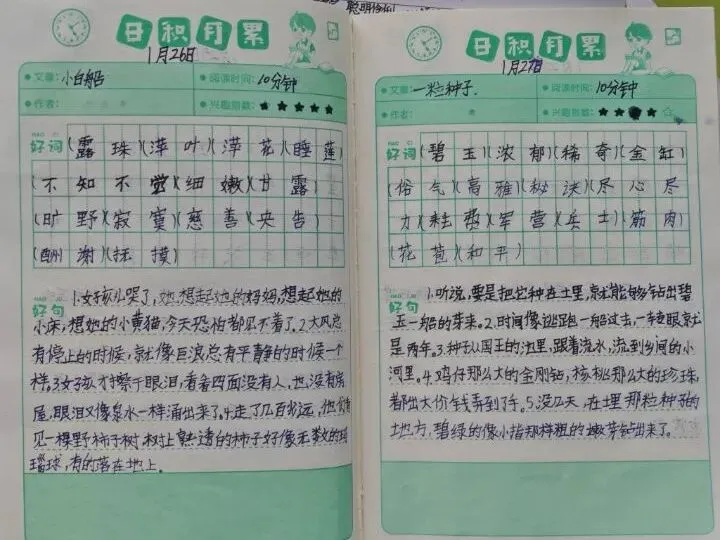 聪明伶俐
日积月累
1月26日
文章：小白船
阅读时间：10分钟
作者：
兴趣指数：★★★★★
好词
(露珠)(萍叶)(萍花)(睡莲)
(不知不觉)(细嫩)(甘露)
(旷野)(寂寞)(慈善)(央告)
(酬谢)(抚摸)
好句
1.女孩儿哭了,她想起她的妈妈,想起她的
小床,想她的小黄猫,今天恐怕都见不着了.2.大风总
有停上的时候,就像巨浪总有平静的时候一个
样.3.女孩才擦干眼泪,看看四面没有人,也没有房
屋,眼泪又像泉水一样涌出来了.4.走了几百步远,他们看
见一棵野柿子树,树上熟透的柿子好像无数的玛
瑙球,有的落在地上。
日积月累
1月27日
文章：一粒种子.
阅读时间：10分钟
作者：
兴趣指数：★★★★☆
好词
(碧玉)(浓郁)(稀奇)(金缸)
(俗气)(高雅)(秘诀)(尽心尽
力)(耗费)(军营)(兵士)(筋肉)
(花苞)(和平)
好句
1.听说,要是把它种在土里,就能够钻出碧
玉一般的芽来.2.时间像逃跑一般过去,一转眼就
是两年.3.种子从国王的沟里,跟着流水,流到乡间的小
河里.4.鸡仔那么大的金刚钻,核桃那么大的珍珠,
都出大价钱弄到手.5.没几天,在土里那粒种子的
地方,碧绿的像小指那样粗的嫩芽钻出来了.